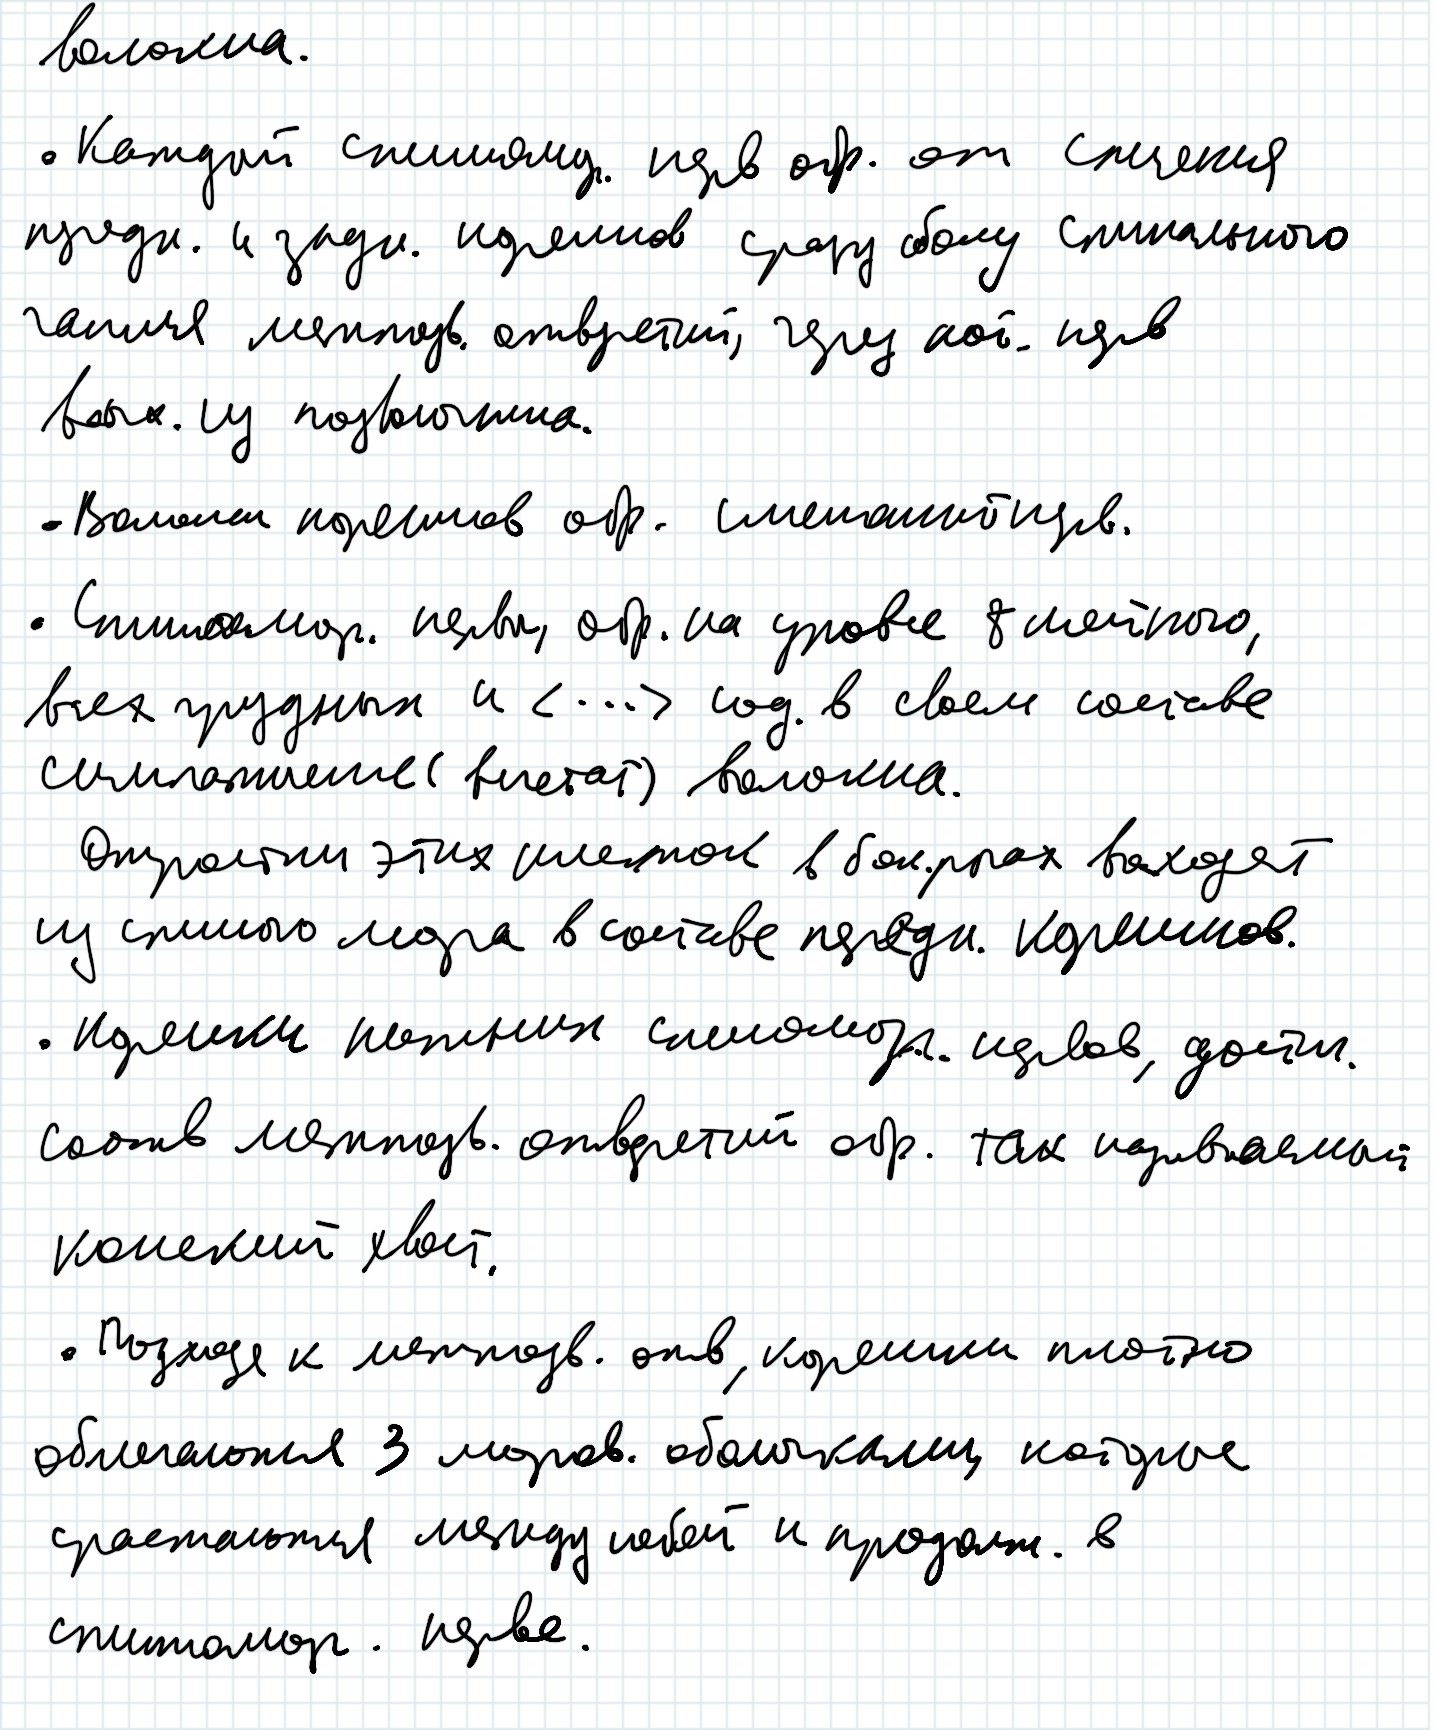 волокна.
• Каждый спинномозг. нерв обр. от слияния
передн. и задн. корешков сразу сбоку спинального
ганглия межпозв. отверстий, через кот. нерв
вых. из позвоночника.
- Волокна корешков обр. смешанный нерв.
• Спинномозг. нервы, обр. на уровне 8 шейного,
всех грудных и <...> сод. в своем составе
симпатические (вегетат) волокна.
Отростки этих клеток в бок. рогах выходят
из спинного мозга в составе передн. корешков.
• Корешки нижних спинномозг. нервов, достиг.
соотв межпозв. отверстий обр. так называемый
конский хвост.
• Подходя к межпозв. отв, корешки плотно
облегаются 3 мозгов. оболочками, которые
срастаются между собой и продолж. в
спинномозг. нерве.